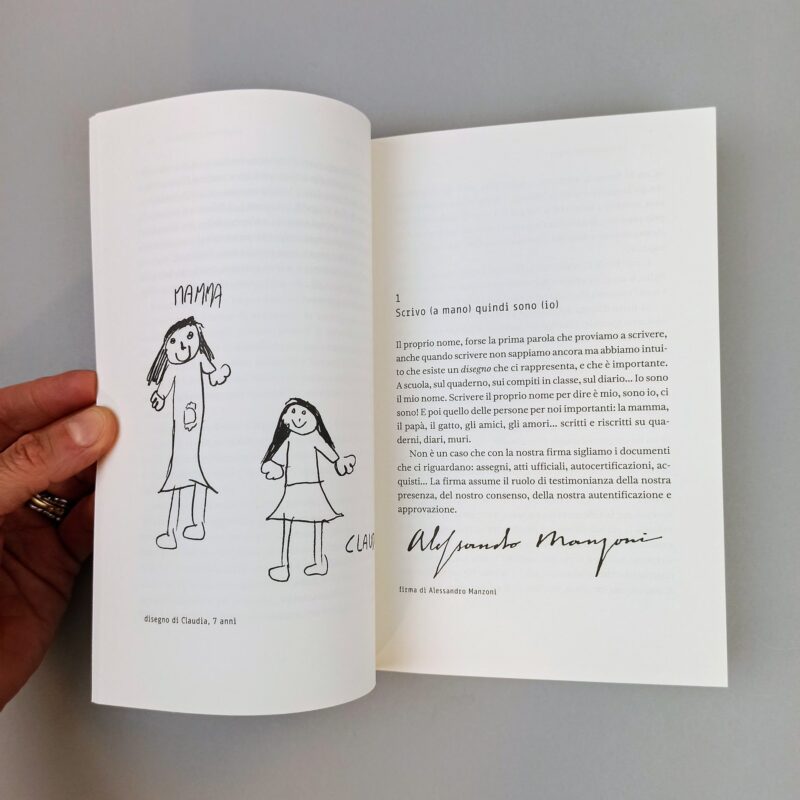 MAMMA
disegno di Claudia, 7 anni
1
Scrivo (a mano) quindi sono (io)
Il proprio nome, forse la prima parola che proviamo a scrivere,
anche quando scrivere non sappiamo ancora ma abbiamo intui-
to che esiste un disegno che ci rappresenta, e che è importante.
A scuola, sul quaderno, sui compiti in classe, sul diario... Io sono
il mio nome. Scrivere il proprio nome per dire è mio, sono io, ci
sono! E poi quello delle persone per noi importanti: la mamma,
il papà, il gatto, gli amici, gli amori... scritti e riscritti su qua-
derni, diari, muri.
Non è un caso che con la nostra firma sigliamo i documenti
che ci riguardano: assegni, atti ufficiali, autocertificazioni, ac-
quisti... La firma assume il ruolo di testimonianza della nostra
presenza, del nostro consenso, della nostra autentificazione e
approvazione.
Alessandro Manzoni
firma di Alessandro Manzoni